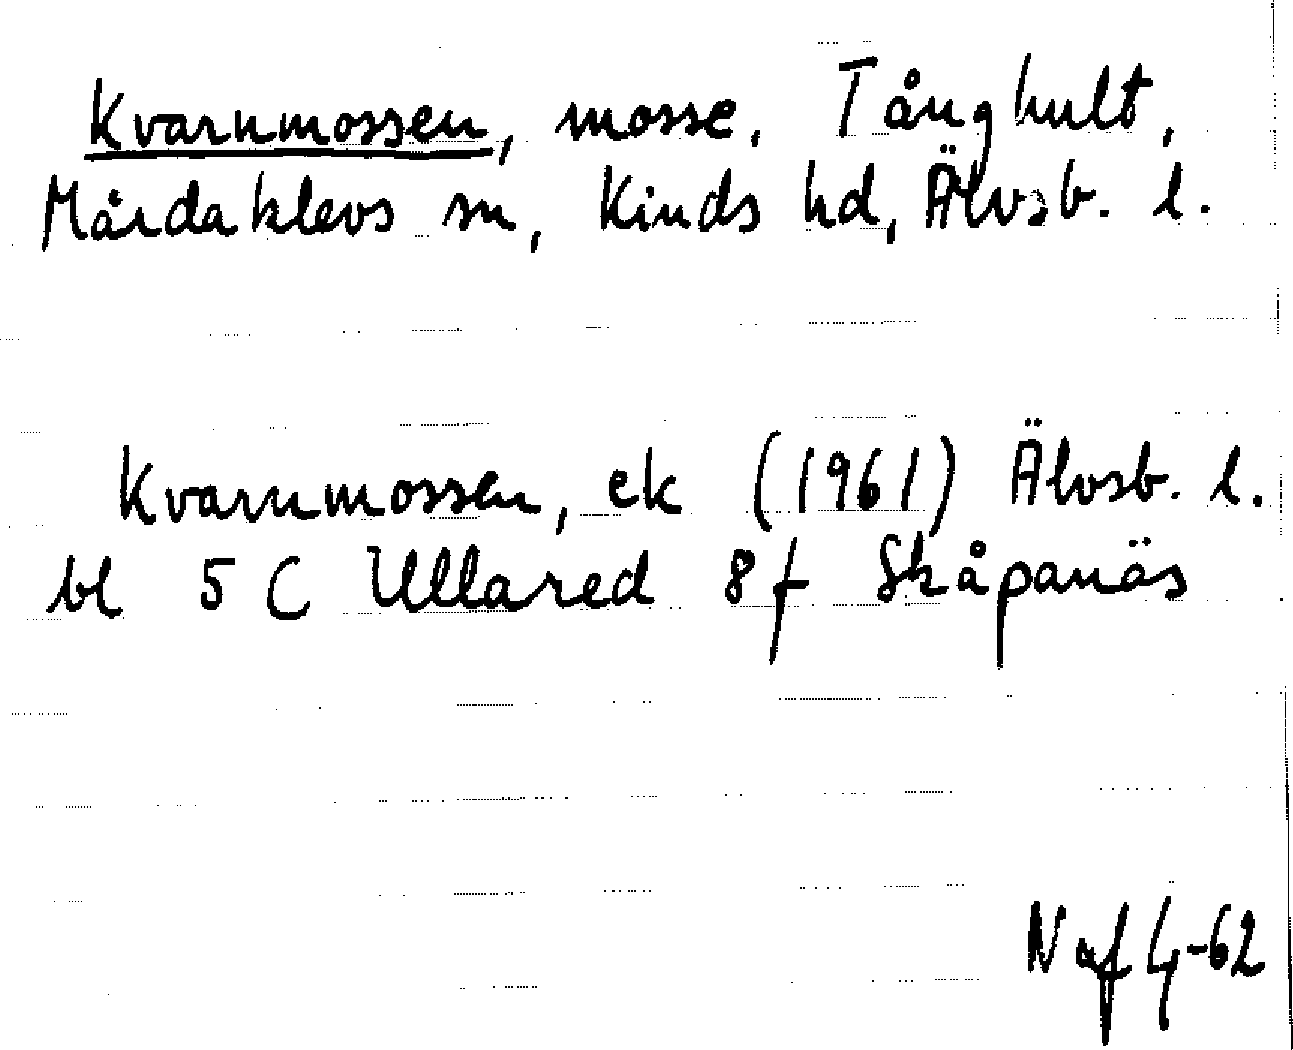 Kvarnmossen, mosse. Tånghult,
Mårdaklevs sn, Kinds hd, Älvsb. l.
Kvarnmossen, ek (1961) Älvsb. l.
bl 5 C Ullared 8 f Skåpanäs
Naf 4-62